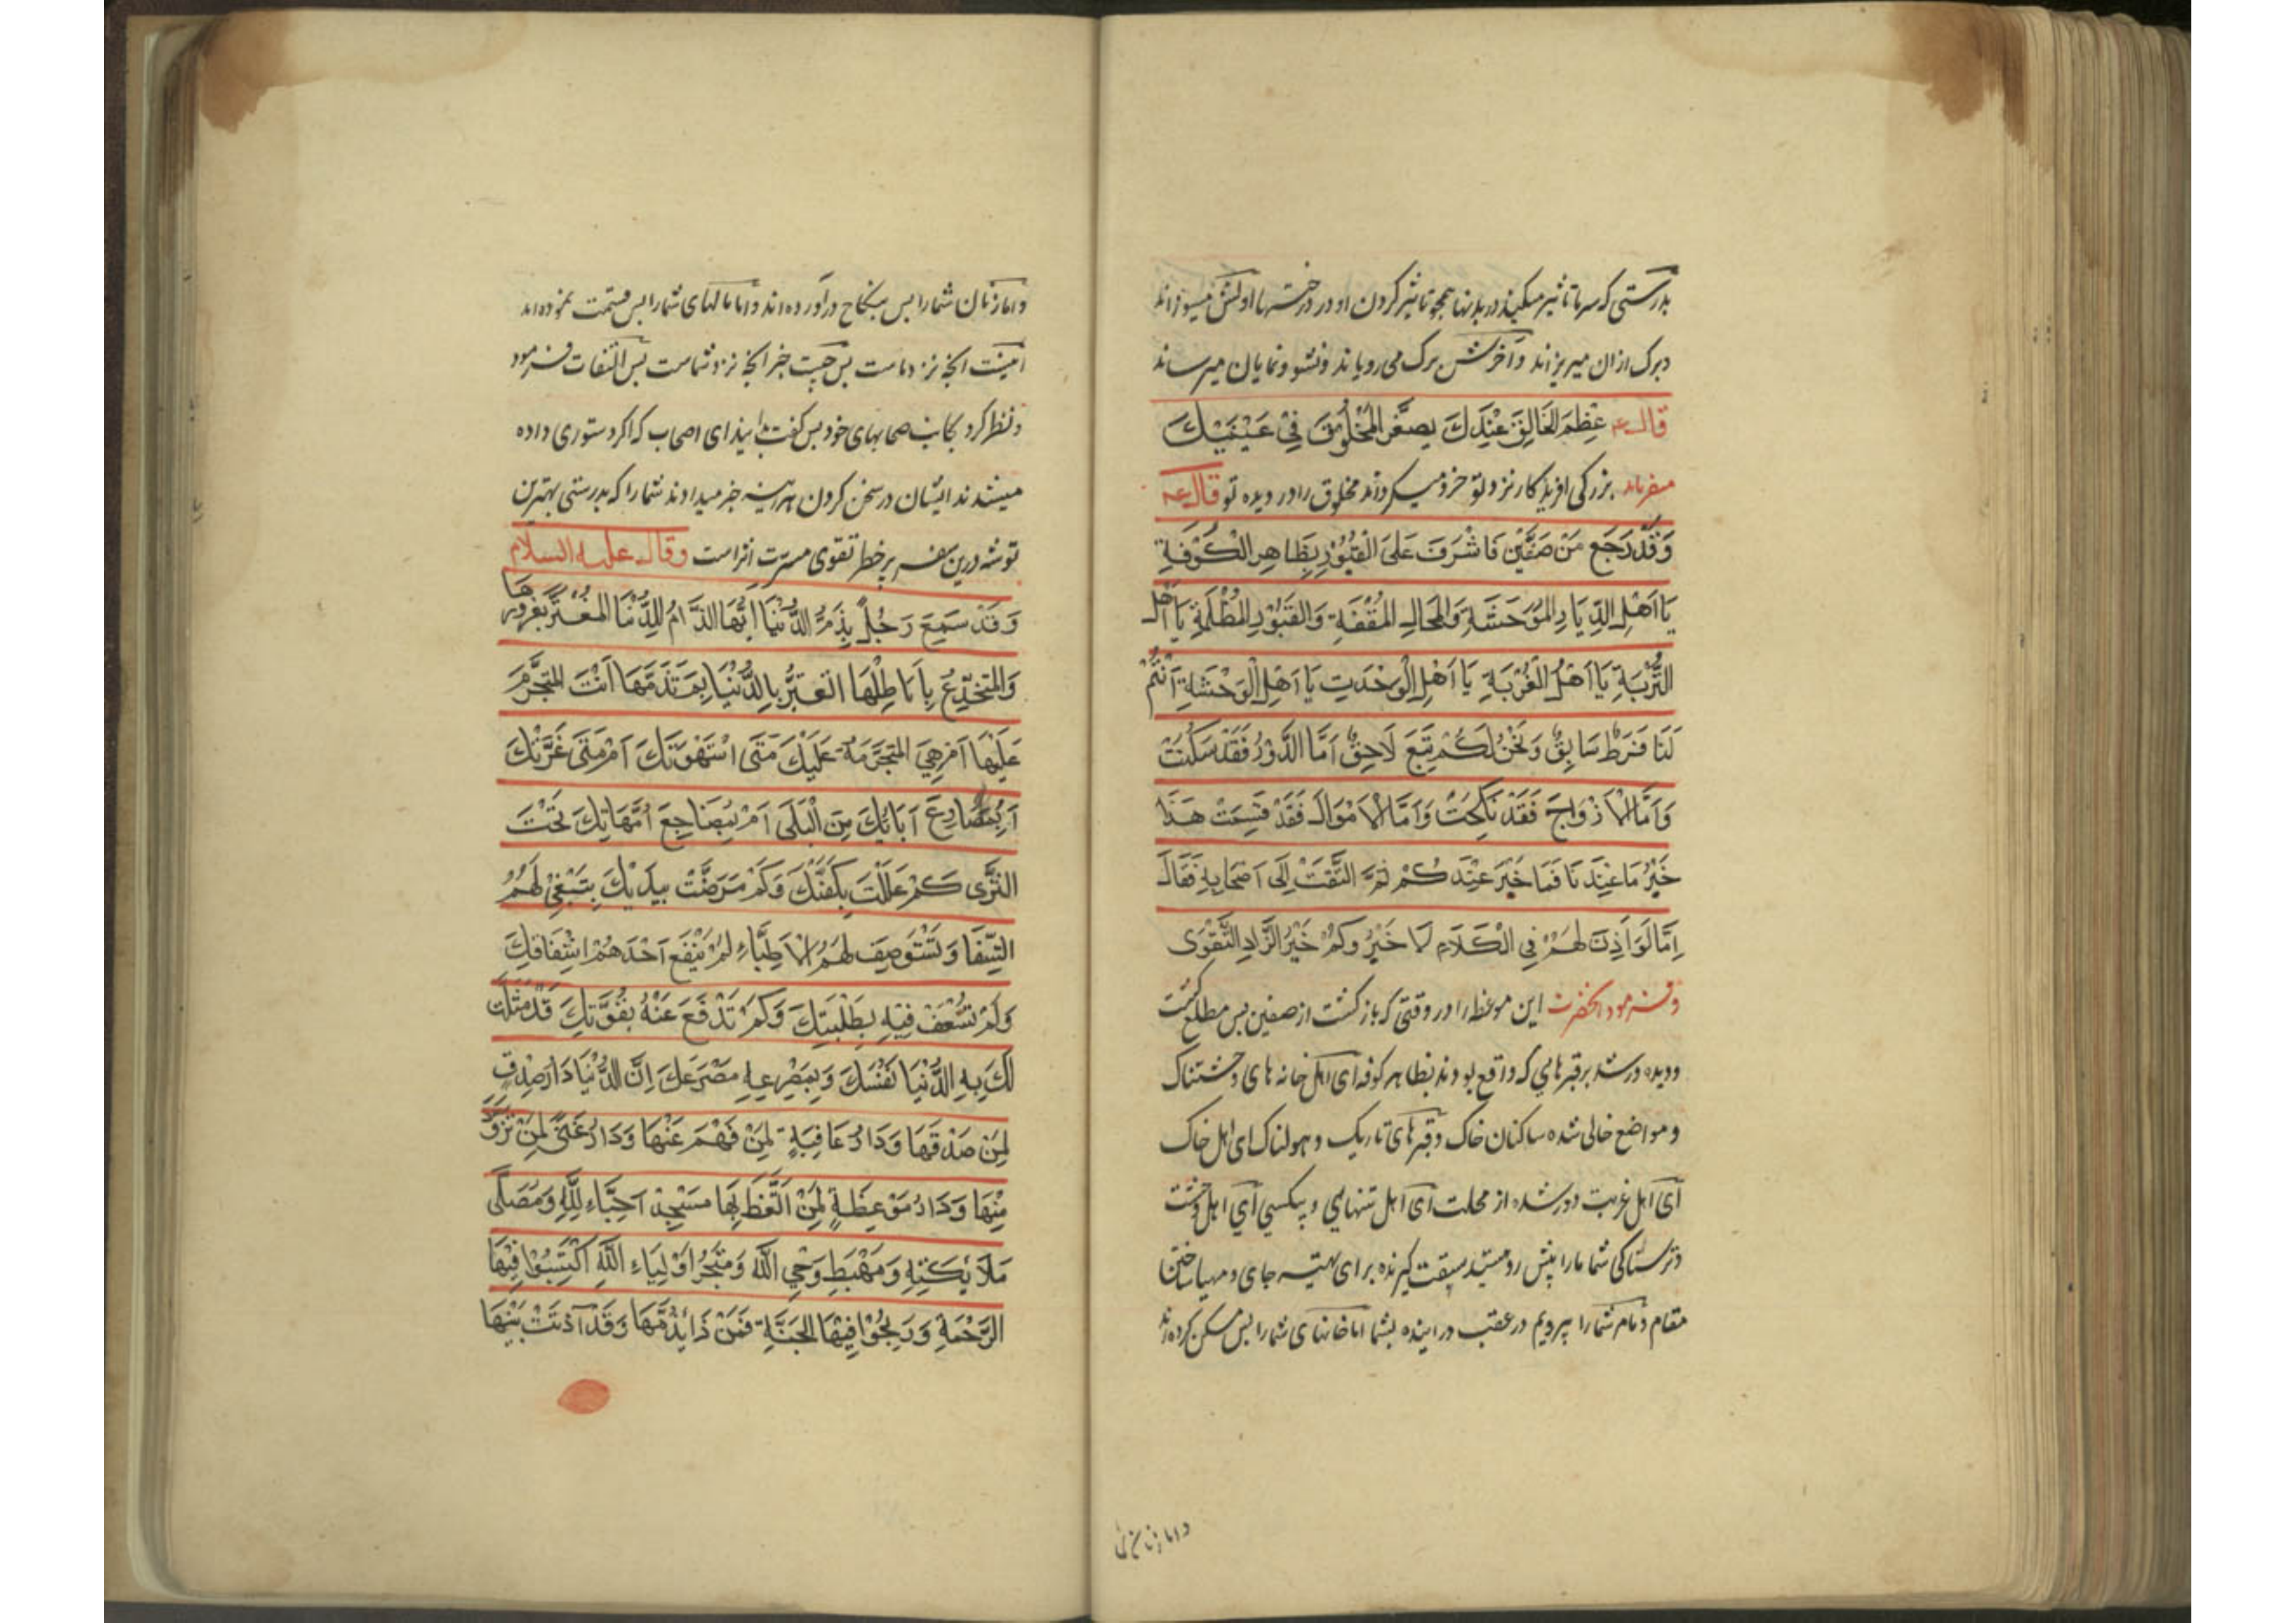 بدرستی که سرما تاثیر میکند در بدنها همچو تاثیر کردن او در درختها اولش میسوزاند
وبرک ازان میریزاند وآخرش برک می رویاند ونشو ونمایان میرساند
قال عَظِمَ الخَالِقَ عِنْدَكَ يصَغِّر المَخْلُوقَ فِي عَيْنَيْكَ
میفرماید بزرکی افریدکار نزد تو خرد میکرداند مخلوق را در دیده تو قال
وَقَدْ رَجَعَ مِنْ صِفِّين فَاشْرَفَ عَلَى القُبُورِ بِظَاهِرِ الْكُوفَةِ
يَا اَهْلَ الدِّيَارِ المُوْحَشَةِ وَالمحَالِ المُقْفَةِ وَالقُبُورِ المُظْلِمَةِ يَا اَهْلَ
التُّرْبَةِ يَا اَهْلَ الغُرْبَةِ يَا اَهْلَ الْوَحْدَتِ يَا اَهْلَ الْوَحْشَةِ اَنْتُمْ
لَنَا فَرَطٌ سَابِقٌ وَنَحْنُ لَكُمْ تَبَعَ لَاحِقٌ اَمَّا الدُّوْرُ فَقَدْ سَكَنَتْ
وَاَمَّا الْاَزْوَاجَ فَقَدْ نَكِحَتْ وَاَمَّا الْاَمْوَالَ فَقَدْ قَسِمَتْ هَذَا
خَيْرُ مَا عِنْدَنَا فَمَا خَيْرَ عِنْدَكُمْ ثُمَّ التَّفَتْ اِلَى اَصْحَابِهِ فَقَالَ
اِمَّا لَوْ اَذِنَ لَهُمْ فِي الْكَلَامِ لَا خَيْرُ وكُمْ خَيْرُ الزَّادِ التَّقْوَى
وفرمود انحضرت این موعظه را در وقتی که بازکشت از صفین بس مطلع کشت
ودیده ور شد بر قبرهایی که واقع بودند بظاهر کوفه ای اهل خانه های وحشتناک
ومواضع خالی شده ساکنان خاک وقبرهای تاریک وهولناک ای اهل خاک
آی اهل غربت دور شده از محلت ای اهل تنهایی وبیکسی آی اهل وحشت
وترسناکی شما ما را پیش رو هستید سبقت کیرنده برای تهیه جای ومهیا ساختن
مقام وما مر شما را پیرویم در عقب در اینده بشما اما خانهای شما را بس مسکن کرده اند
واما زنان
واما زنان شما را بس بنکاح در آورده اند واما مالهای شما را بس قسمت نموده اند
اینست انچه نزد ماست بس چیست خبر انچه نزد شماست بس التفات فرمود
ونظر کرد بجانب صحابهای خود بس کفت بدانید ای اصحاب که اکر دستوری داده
میشدند ایشان در سخن کردن هراینه خبر میدادند شما را که بدرستی بهترین
توشه درین سفر بر خطر تقوی مسرت اثر است وقال علیه السلام
وَقَدْ سَمِعَ رَجُلً يذِمُّ الدُّنْيَا اَيُّهَا الذَّامُ لِلدُّنْيَا المغْتَرُّ بغرورها
وَالمنْخَدِعُ بِاَبَاطِلْهَا اتغتَرُّ بِالدُّنْيَا بِمَ تَذَمَّهَا اَنْتَ المتجَرِّمَ
عَلَيْهَا اَمْ هِيَ المتَجَرِّمَة عَلَيْكَ مَتَى اسْتَهْوَتَكَ اَمْ مَتَى غَرَّتْكَ
اَبِمصَارِعَ آبَائِكَ مِنَ الْبَلَى اَمْ بِمضَاجِعَ اُمَّهَاتِكَ تَحْتَ
الثَّرَى كَمْ عَلَّلْتَ بِكَفَّيْكَ وَكَمْ مَرَضْتْ بِيَدَيْكَ تَبْتَغِي لَهُمُ
الشِّفَا وَتَسْتَوصِفَ لَهُمُ الْاَطِبَّاءِ لَمْ يَنْفَعْ اَحْدَهُمْ اشْفَاقكَ
وَلَمْ تُسْعَفْ فِيْهِ بِطَلَبِتِكَ وَلَمْ تَدْفَعَ عَنْهُ بِقُوَّتِكَ قَدْ مثلت
لَكَ بِهِ الدُّنْيَا نَفْسَكَ وَبِمَصْرَعِهِ مَصْرَعَكَ اِنَّ الدُّنْيَا دَارُ صِدْقٍ
لِمَنْ صَدْقَهَا وَدَارُ عَافِيَةٍ لِمَنْ فَهْمَ عَنْهَا وَدَارُ غَنًى لِمَنْ تَزَوَّدَ
مِنْهَا وَدَارُ مَوْعِظَةٍ لِمَنْ اتَّعَظَ بِهَا مَسْجِدْ اَحِبَّاءِ لِلَّهِ وَمُصَلَّى
مَلَائِكَتِهِ وَمَهْبَطِ وَحْيِ اللَّهِ وَمتْجَرُ اَوْلِيَاءِ اللَّهِ اكْتَسَبُوْا فِيْهَا
الرَّحْمَةِ وَرَبِحُوْا فِيْهَا الجَنَّةِ فَمَنْ ذَا يَذُمُّهَا وَقَدْ آذَنَتْ بَيْنِهَا